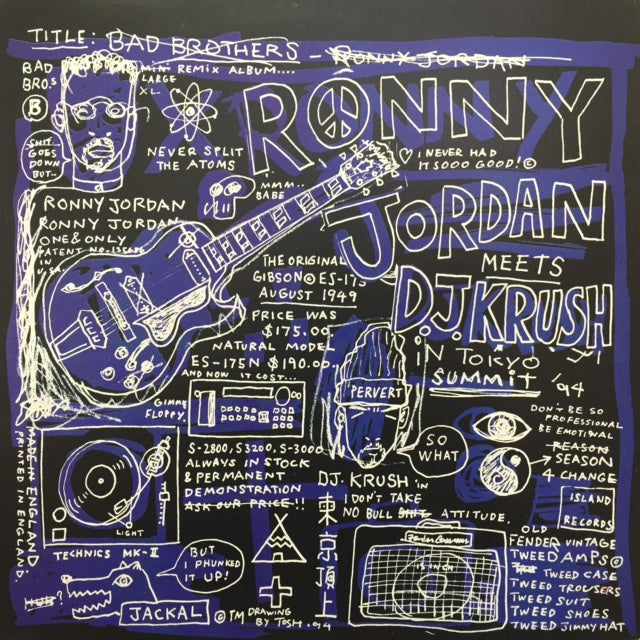 TITLE: BAD BROTHERS - RONNY JORDAN
BAD
BROS
B
MIN' REMIX ALBUM....
LARGE
XL
RONNY
SHIT
GOES
DOWN
BUT..
NEVER SPLIT
THE ATOMS
♡ I NEVER HAD
IT SOOO GOOD!©
MMM..
BABE
RONNY JORDAN
RONNY JORDAN
ONE & ONLY
PATENT NO.
IN
U.S.A.
JORDAN
MEETS
D.J. KRUSH
IN TOKYO
SUMMIT '94
THE ORIGINAL
GIBSON © ES-175
AUGUST 1949
PRICE WAS
$175.00.
NATURAL MODEL
ES-175N $190.00.
AND NOW IT COST...
GIMME
FLOPPY.
PERVERT
SO
WHAT
DON'T BE SO
PROFESSIONAL
BE EMOTIONAL
REASON
→ SEASON
4 CHANGE
ISLAND
RECORDS
S-2800, S3200, S-3000
ALWAYS IN STOCK
& PERMANENT
DEMONSTRATION
ASK OUR PRICE!!
MADE IN ENGLAND
PRINTED IN ENGLAND.
LIGHT
TECHNICS MK-II
BUT
I PHUNKED
IT UP!
JACKAL
© TM DRAWING
BY TOSH .94
D.J. KRUSH in
I DON'T TAKE
NO BULL SHIT ATTITUDE.
東京頂上
15 INCH
OLD
FENDER VINTAGE
TWEED AMPS©
TWEED CASE
TWEED TROUSERS
TWEED SUIT
TWEED SHOES
TWEED JIMMY HAT